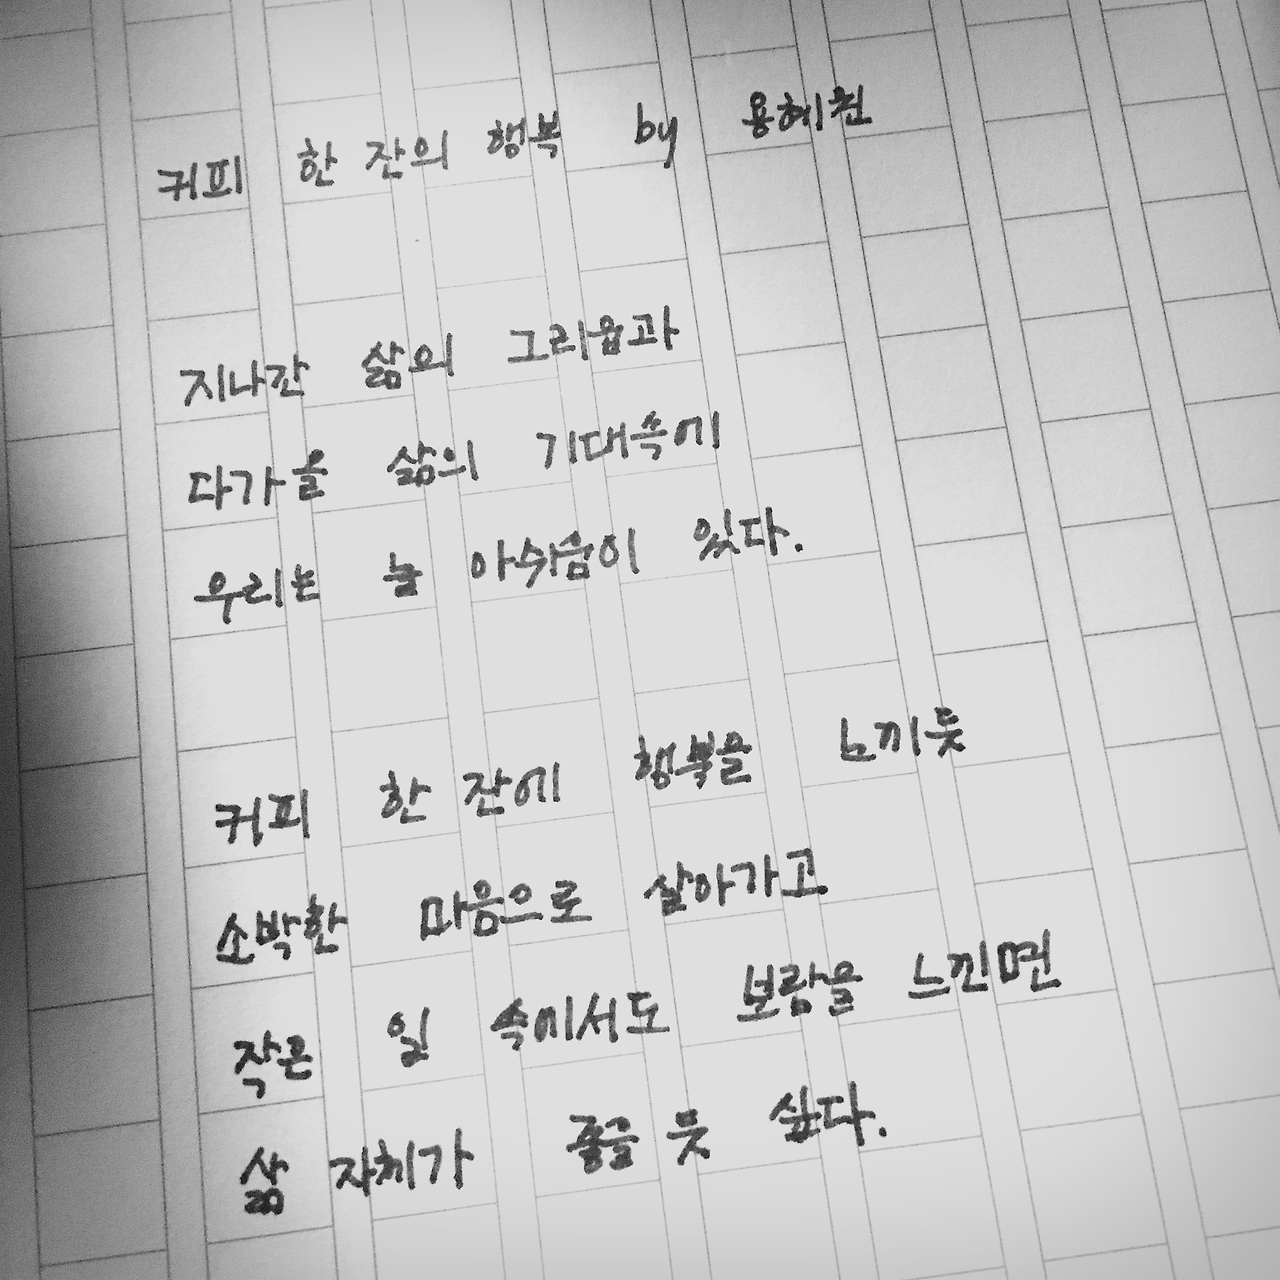 커피 한 잔의 행복 by 용혜원
지나간 삶의 그리움과
다가올 삶의 기대속에
우리는 늘 아쉬움이 있다.
커피 한 잔에 행복을 느끼듯
소박한 마음으로 살아가고
작은 일 속에서도 보람을 느낀면
삶 자체가 좋을 듯 싶다.